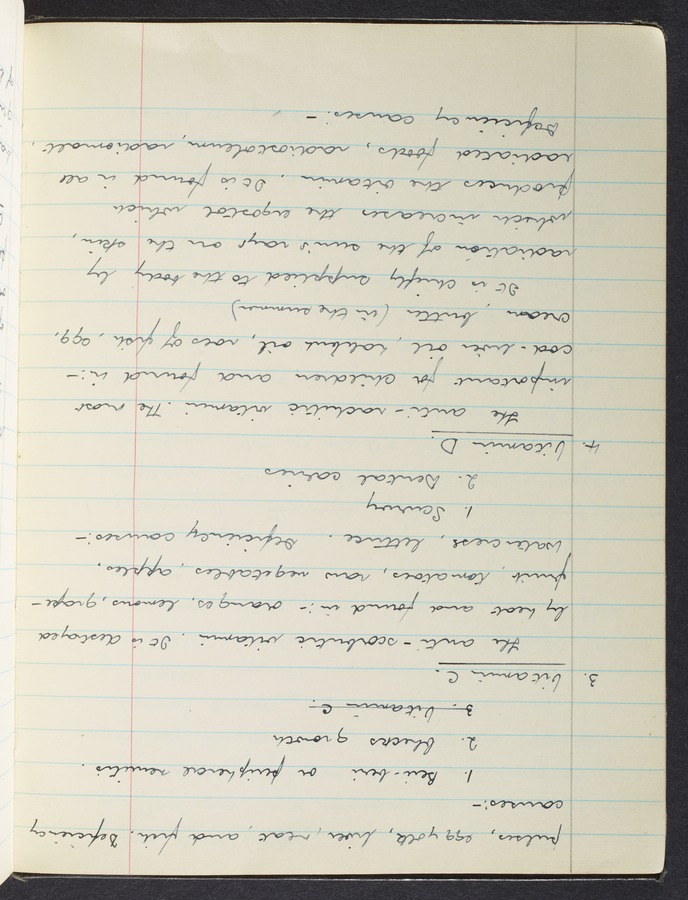 pulses, egg yolk, liver, meat, and fish. Deficiency
causes:-
1. Beri-beri or peripheral neuritis.
2. Checks growth
3. Vitamin C.
3. Vitamin C.
the anti-scorbutic vitamin. It is destroyed
by heat and found in :- oranges, lemons, grape-
fruit, tomatoes, raw vegetables, apples,
watercress, lettuce. Deficiency causes:-
1. Scurvy
2. Dental caries
4. Vitamin D.
the anti-rachitic vitamin. The most
important for children and found in:-
cod-liver oil, halibut oil, roes of fish, egg,
cream, butter (in the summer)
It is chiefly supplied to the body by
radiation of the sun's rays on the skin,
which increases the ergostol which
produces the vitamin. It is found in all
radiated foods, radiostoleum, radiomalt.
Deficiency causes:-